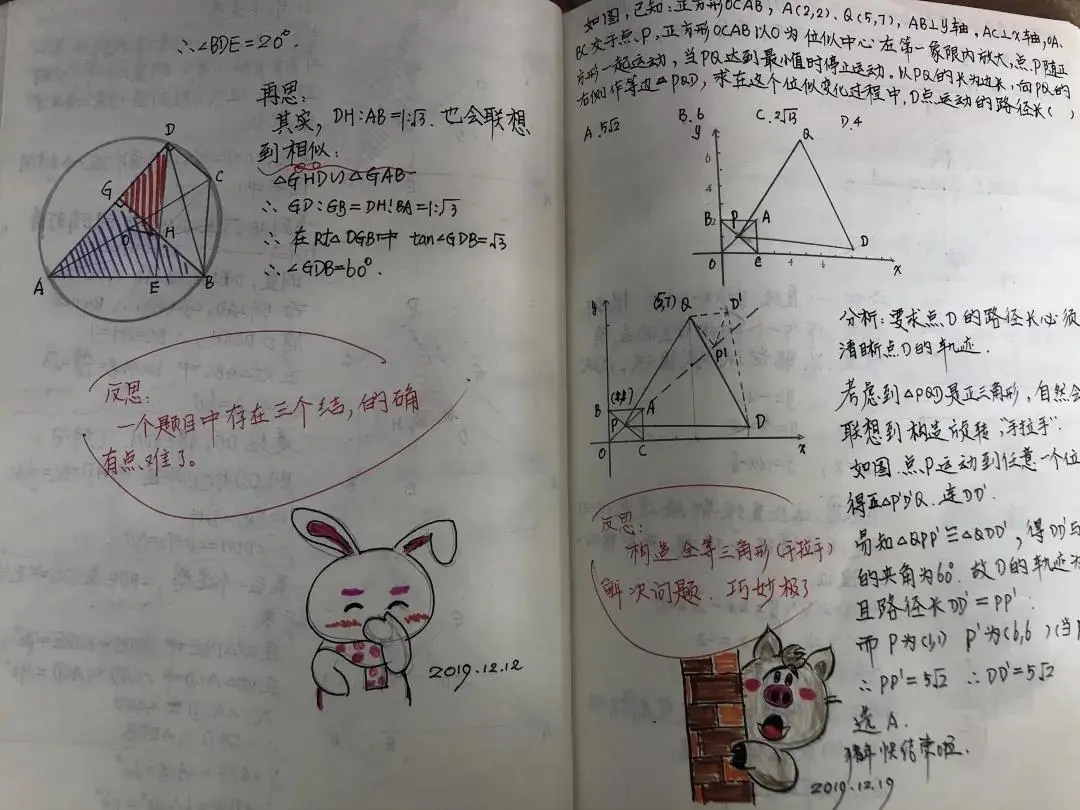 ∴∠BDE=20°.
再思:
其实, DH:AB=1:√3. 也会联想
到相似:
△GHD∽△GAB
∴ GD:GB=DH:BA=1:√3
∴ 在Rt△DGB中 tan∠GDB=√3
∴ ∠GDB=60°.
D
G
C
O
H
A
E
B
反思:
一个题目中存在三个结, 的确
有点难了。
2019.12.12
如图, 已知: 正方形OCAB, A(2,2), Q(5,7), AB⊥y轴, AC⊥x轴, OA、
BC交于点P, 正方形OCAB以O为位似中心在第一象限内放大, 点P随正
方形一起运动, 当PQ达到最小值时停止运动. 以PQ的长为边长, 向PQ的
右侧作等边△PQD, 求在这个位似变化过程中, D点运动的路径长( )
A.5√2 B.6 C.2√13 D.4
y
Q
6
4
B 2 P A
D
O C 4 6 x
y
(5,7) Q D'
P'
(2,2)
B A
P D
O C x
分析: 要求点D的路径长必须
清晰点D的轨迹.
考虑到△PQD是正三角形, 自然会
联想到构造旋转, "手拉手".
如图. 点P运动到任意一个位
得正△P'D'Q. 连DD'
易知△QPP'≌△QDD', 得DD'与
的夹角为60°. 故D的轨迹为
且路径长DD'=PP'
而P为(1,1) P'为(6,6) (当P
∴ PP'=5√2 ∴DD'=5√2
选A.
猪年快结束啦.
2019.12.19
反思:
构造全等三角形(手拉手)
解决问题. 巧妙极了